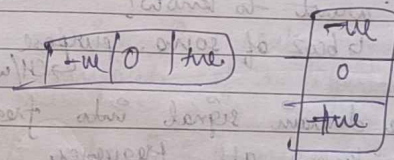 -ve | 0 | +ve
-ve
0
+ve